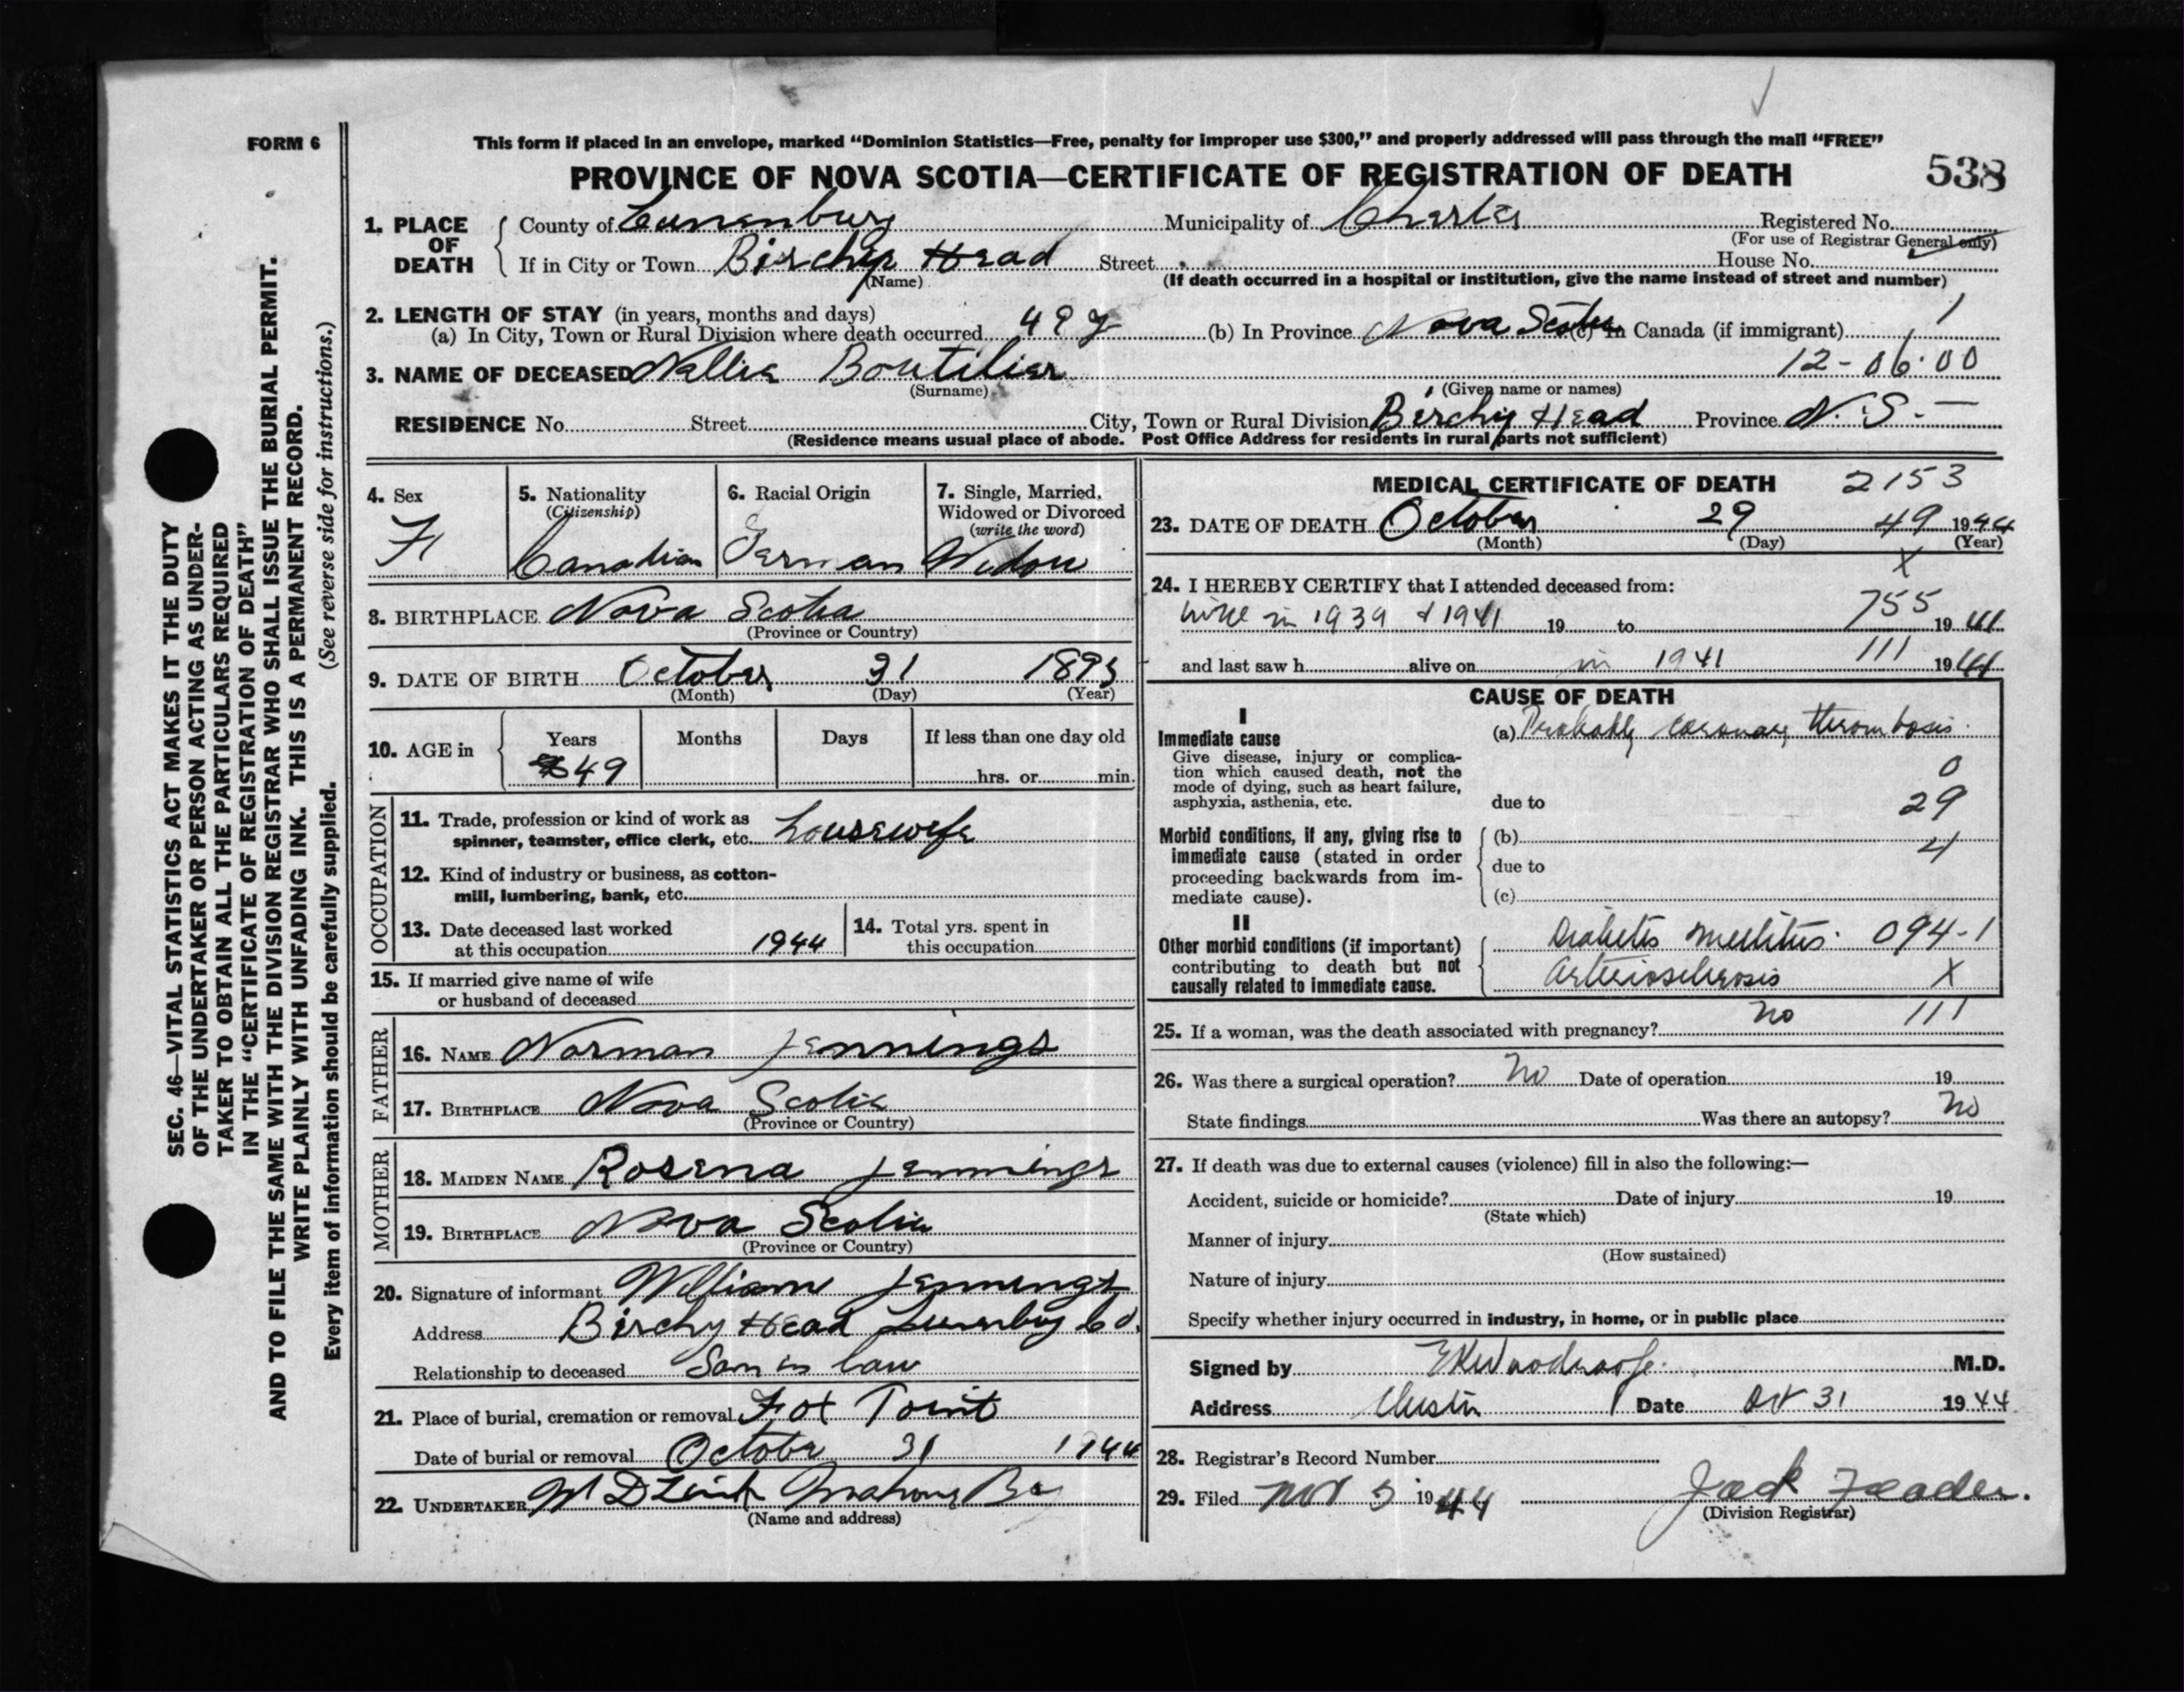 FORM 6
This form if placed in an envelope, marked “Dominion Statistics—Free, penalty for improper use $300,” and properly addressed will pass through the mail “FREE”
PROVINCE OF NOVA SCOTIA—CERTIFICATE OF REGISTRATION OF DEATH
538
1. PLACE OF DEATH
County of Lunenburg Municipality of Chester Registered No.
(For use of Registrar General only)
If in City or Town Birchy Head Street House No.
(Name) (If death occurred in a hospital or institution, give the name instead of street and number)
2. LENGTH OF STAY (in years, months and days)
(a) In City, Town or Rural Division where death occurred 49 y (b) In Province Nova Scotia (c) In Canada (if immigrant) 1
3. NAME OF DECEASED Nellie Boutilier 12-06.00
(Surname) (Given name or names)
RESIDENCE No. Street City, Town or Rural Division Birchy Head Province N.S.—
(Residence means usual place of abode. Post Office Address for residents in rural parts not sufficient)
4. Sex
F
5. Nationality
(Citizenship)
Canadian
6. Racial Origin
German
7. Single, Married,
Widowed or Divorced
(write the word)
Widow
8. BIRTHPLACE Nova Scotia
(Province or Country)
9. DATE OF BIRTH October 31 1895
(Month) (Day) (Year)
10. AGE in
Years Months Days If less than one day old
49 hrs. or min.
OCCUPATION
11. Trade, profession or kind of work as
spinner, teamster, office clerk, etc. housewife
12. Kind of industry or business, as cotton-
mill, lumbering, bank, etc.
13. Date deceased last worked
at this occupation 1944
14. Total yrs. spent in
this occupation
15. If married give name of wife
or husband of deceased
FATHER
16. NAME Norman Jennings
17. BIRTHPLACE Nova Scotia
(Province or Country)
MOTHER
18. MAIDEN NAME Rosena Jennings
19. BIRTHPLACE Nova Scotia
(Province or Country)
20. Signature of informant William Jennings
Address Birchy Head Lunenburg Co.
Relationship to deceased Son in law
21. Place of burial, cremation or removal Fox Point
Date of burial or removal October 31 1944
22. UNDERTAKER Mahone Bay
(Name and address)
MEDICAL CERTIFICATE OF DEATH 2153
23. DATE OF DEATH October 29 49 1944
(Month) (Day) (Year)
X
24. I HEREBY CERTIFY that I attended deceased from:
in 1939 & 1941 19 to 755 1941
and last saw h alive on in 1941 111 1941
CAUSE OF DEATH
I
Immediate cause
Give disease, injury or complica-
tion which caused death, not the
mode of dying, such as heart failure,
asphyxia, asthenia, etc.
(a) Probably coronary thrombosis.
0
due to 29
Morbid conditions, if any, giving rise to
immediate cause (stated in order
proceeding backwards from im-
mediate cause).
(b) 4
due to
(c)
II
Other morbid conditions (if important)
contributing to death but not
causally related to immediate cause.
Diabetis mellitus. 094-1
Arteriosclerosis X
25. If a woman, was the death associated with pregnancy? no 111
26. Was there a surgical operation? no Date of operation 19
State findings Was there an autopsy? no
27. If death was due to external causes (violence) fill in also the following:—
Accident, suicide or homicide? Date of injury 19
(State which)
Manner of injury
(How sustained)
Nature of injury
Specify whether injury occurred in industry, in home, or in public place
Signed by M.D.
Address Chester Date Oct 31 1944
28. Registrar's Record Number
29. Filed Nov 3 1944 Jack
(Division Registrar)
SEC. 46—VITAL STATISTICS ACT MAKES IT THE DUTY
OF THE UNDERTAKER OR PERSON ACTING AS UNDER-
TAKER TO OBTAIN ALL THE PARTICULARS REQUIRED
IN THE “CERTIFICATE OF REGISTRATION OF DEATH”
AND TO FILE THE SAME WITH THE DIVISION REGISTRAR WHO SHALL ISSUE THE BURIAL PERMIT.
WRITE PLAINLY WITH UNFADING INK. THIS IS A PERMANENT RECORD.
Every item of information should be carefully supplied. (See reverse side for instructions.)